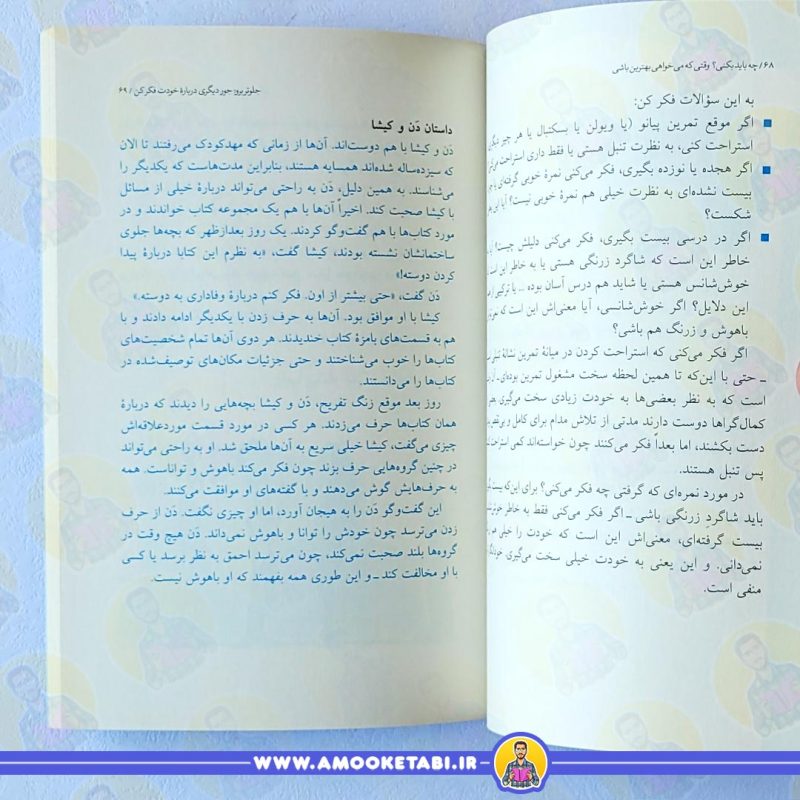 ۶۸/ چه باید بکنی؟ وقتی که می‌خواهی بهترین باشی
به این سؤالات فکر کن:
اگر موقع تمرین پیانو (یا ویولن یا بسکتبال یا هر چیز
استراحت کنی، به نظرت تنبل هستی یا فقط داری استراحت
اگر هجده یا نوزده بگیری، فکر می‌کنی نمرهٔ خوبی گرفته‌ای یا
بیست نشده‌ای به نظرت خیلی هم نمرهٔ خوبی نیست؟ آیا این
شکست؟
اگر در درسی بیست بگیری، فکر می‌کنی دلیلش چیست؟
خاطر این است که شاگرد زرنگی هستی یا به خاطر این
خوش‌شانس هستی یا شاید هم درس آسان بوده ... یا ترکیبی
این دلایل؟ اگر خوش‌شانسی، آیا معنی‌اش این است که
باهوش و زرنگ هم باشی؟
اگر فکر می‌کنی که استراحت کردن در میانهٔ تمرین نشانهٔ
ـ حتی با این‌که تا همین لحظه سخت مشغول تمرین بوده‌ای ـ
است که به نظر بعضی‌ها به خودت زیادی سخت می‌گیری.
کمال‌گراها دوست دارند مدتی از تلاش مدام برای کامل و
دست بکشند، اما بعداً فکر می‌کنند چون خواسته‌اند کمی
پس تنبل هستند.
در مورد نمره‌ای که گرفتی چه فکر می‌کنی؟ برای این‌که
باید شاگردِ زرنگی باشی ـ اگر فکر می‌کنی فقط به خاطر
بیست گرفته‌ای، معنی‌اش این است که خودت را خیلی هم
نمی‌دانی. و این یعنی به خودت خیلی سخت می‌گیری،
منفی است.
جلوتر برو: جور دیگری دربارهٔ خودت فکر کن / ۶۹
داستان دَن و کیشا
دَن و کیشا با هم دوست‌اند. آن‌ها از زمانی که مهدکودک می‌رفتند تا الان
که سیزده‌ساله شده‌اند همسایه هستند، بنابراین مدت‌هاست که یکدیگر را
می‌شناسند. به همین دلیل، دَن به راحتی می‌تواند دربارهٔ خیلی از مسائل
با کیشا صحبت کند. اخیراً آن‌ها با هم یک مجموعه کتاب خواندند و در
مورد کتاب‌ها با هم گفت‌وگو کردند. یک روز بعدازظهر که بچه‌ها جلوی
ساختمانشان نشسته بودند، کیشا گفت، «به نظرم این کتابا دربارهٔ پیدا
کردن دوسته!»
دَن گفت، «حتی بیشتر از اون. فکر کنم دربارهٔ وفاداری به دوسته.»
کیشا با او موافق بود. آن‌ها به حرف زدن با یکدیگر ادامه دادند و با
هم به قسمت‌های بامزهٔ کتاب خندیدند. هر دوی آن‌ها تمام شخصیت‌های
کتاب‌ها را خوب می‌شناختند و حتی جزئیات مکان‌های توصیف‌شده در
کتاب‌ها را می‌دانستند.
روز بعد موقع زنگ تفریح، دَن و کیشا بچه‌هایی را دیدند که دربارهٔ
همان کتاب‌ها حرف می‌زدند. هر کسی در مورد قسمت موردعلاقه‌اش
چیزی می‌گفت، کیشا خیلی سریع به آن‌ها ملحق شد. او به راحتی می‌تواند
در چنین گروه‌هایی حرف بزند چون فکر می‌کند باهوش و تواناست. همه
به حرف‌هایش گوش می‌دهند و با گفته‌های او موافقت می‌کنند.
این گفت‌وگو دَن را به هیجان آورد، اما او چیزی نگفت. دَن از حرف
زدن می‌ترسد چون خودش را توانا و باهوش نمی‌داند. دَن هیچ وقت در
گروه‌ها بلند صحبت نمی‌کند، چون می‌ترسد احمق به نظر برسد یا کسی
با او مخالفت کند ـ و این طوری همه بفهمند که او باهوش نیست.
WWW.AMOOKETABI.IR